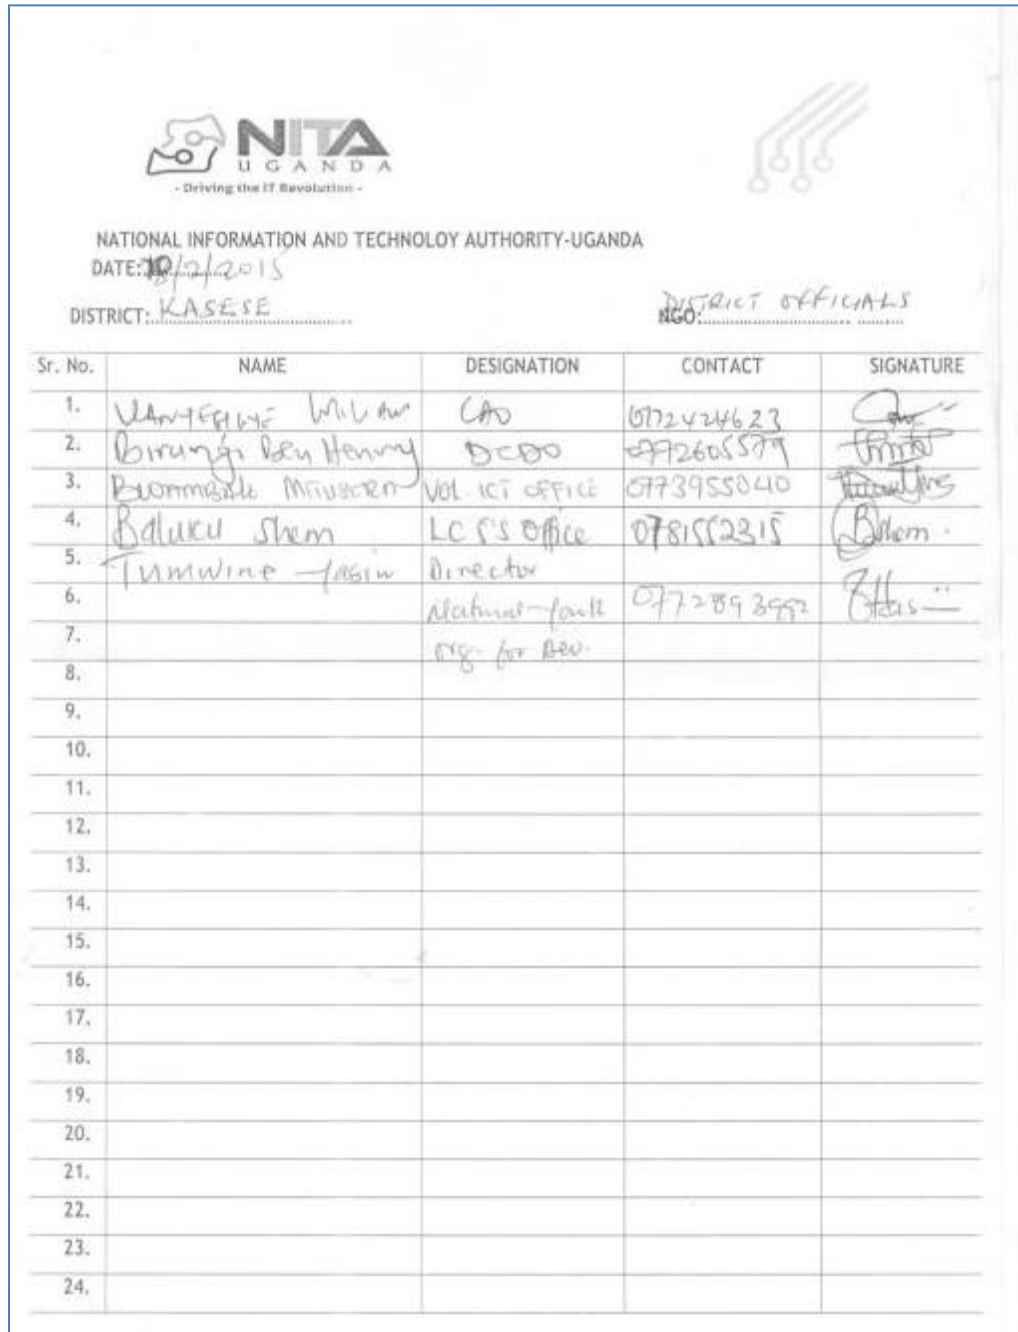 NITA
UGANDA
- Driving the IT Revolution -
NATIONAL INFORMATION AND TECHNOLOY AUTHORITY-UGANDA
DATE: /2/2015
DISTRICT: KASESE NGO: DISTRICT OFFICIALS
Sr. No. NAME DESIGNATION CONTACT SIGNATURE
1. CAO 0772424623
2. Birungi Ben Henry DCDO 0772605579
3. VOL. ICT OFFICE 0773955040
4. Baluku Shem LC 5'S Office 0781552315 Bshem.
5. Tumwine Director
6. 0772893992
7. org. for Dev.
8.
9.
10.
11.
12.
13.
14.
15.
16.
17.
18.
19.
20.
21.
22.
23.
24.